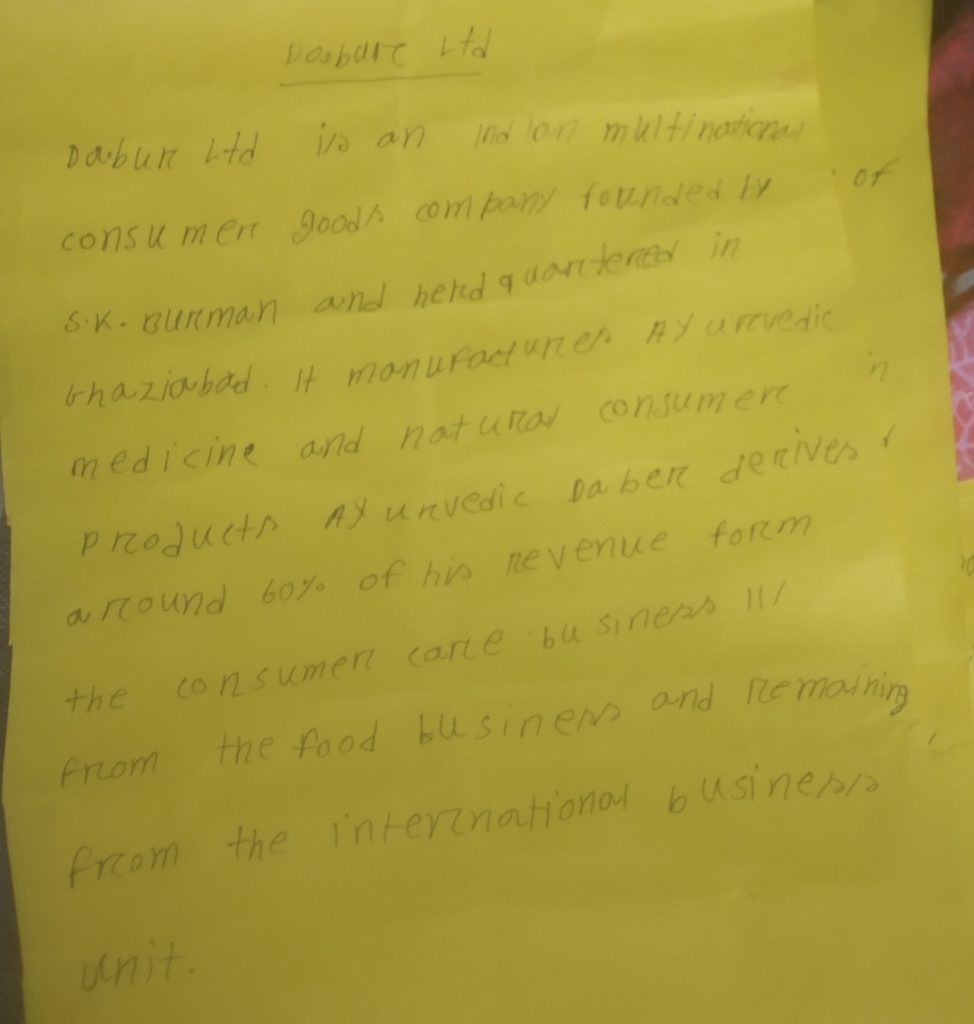 Daabur Ltd
Dabur Ltd is an Indian multinational
consumer goods company founded by of
S.K. Burman and hehdquartered in
Ghaziabad. It manufactures Ayurvedic
medicine and natural consumer in
products Ayurvedic Daber derives
around 60% of his revenue form
the consumer care business 11%
from the food business and remaining
from the international business
unit.